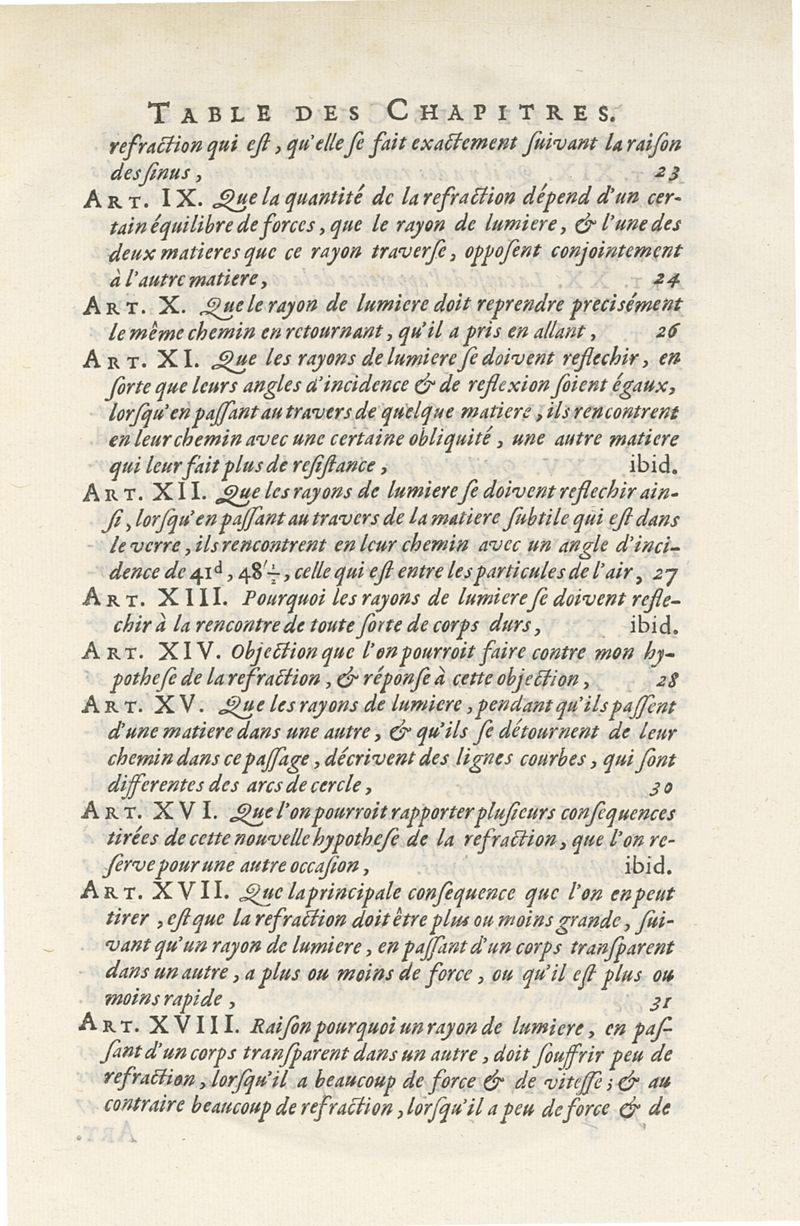 TABLE DES CHAPITRES.
refraction qui eſt, qu'elle ſe fait exactement ſuivant la raiſon
des ſinus, 23
ART. IX. Que la quantité de la refraction dépend d'un cer-
tain équilibre de forces, que le rayon de lumiere, & l'une des
deux matieres que ce rayon traverſe, oppoſent conjointement
à l'autre matiere, 24
ART. X. Que le rayon de lumiere doit reprendre precisément
le même chemin en retournant, qu'il a pris en allant, 26
ART. XI. Que les rayons de lumiere ſe doivent reflechir, en
ſorte que leurs angles d'incidence & de reflexion ſoient égaux,
lorſqu'en paſſant au travers de quelque matiere, ils rencontrent
en leur chemin avec une certaine obliquité, une autre matiere
qui leur fait plus de reſiſtance, ibid.
ART. XII. Que les rayons de lumiere ſe doivent reflechir ain-
ſi, lorſqu'en paſſant au travers de la matiere ſubtile qui eſt dans
le verre, ils rencontrent en leur chemin avec un angle d'inci-
dence de 41ᵈ, 48'½, celle qui eſt entre les particules de l'air, 27
ART. XIII. Pourquoi les rayons de lumiere ſe doivent refle-
chir à la rencontre de toute ſorte de corps durs, ibid.
ART. XIV. Objection que l'on pourroit faire contre mon hy-
potheſe de la refraction, & réponſe à cette objection, 28
ART. XV. Que les rayons de lumiere, pendant qu'ils paſſent
d'une matiere dans une autre, & qu'ils ſe détournent de leur
chemin dans ce paſſage, décrivent des lignes courbes, qui ſont
differentes des arcs de cercle, 30
ART. XVI. Que l'on pourroit rapporter pluſieurs conſequences
tirées de cette nouvelle hypotheſe de la refraction, que l'on re-
ſerve pour une autre occaſion, ibid.
ART. XVII. Que la principale conſequence que l'on en peut
tirer, eſt que la refraction doit être plus ou moins grande, ſui-
vant qu'un rayon de lumiere, en paſſant d'un corps tranſparent
dans un autre, a plus ou moins de force, ou qu'il eſt plus ou
moins rapide, 31
ART. XVIII. Raiſon pourquoi un rayon de lumiere, en paſ-
ſant d'un corps tranſparent dans un autre, doit ſouffrir peu de
refraction, lorſqu'il a beaucoup de force & de viteſſe; & au
contraire beaucoup de refraction, lorſqu'il a peu de force & de